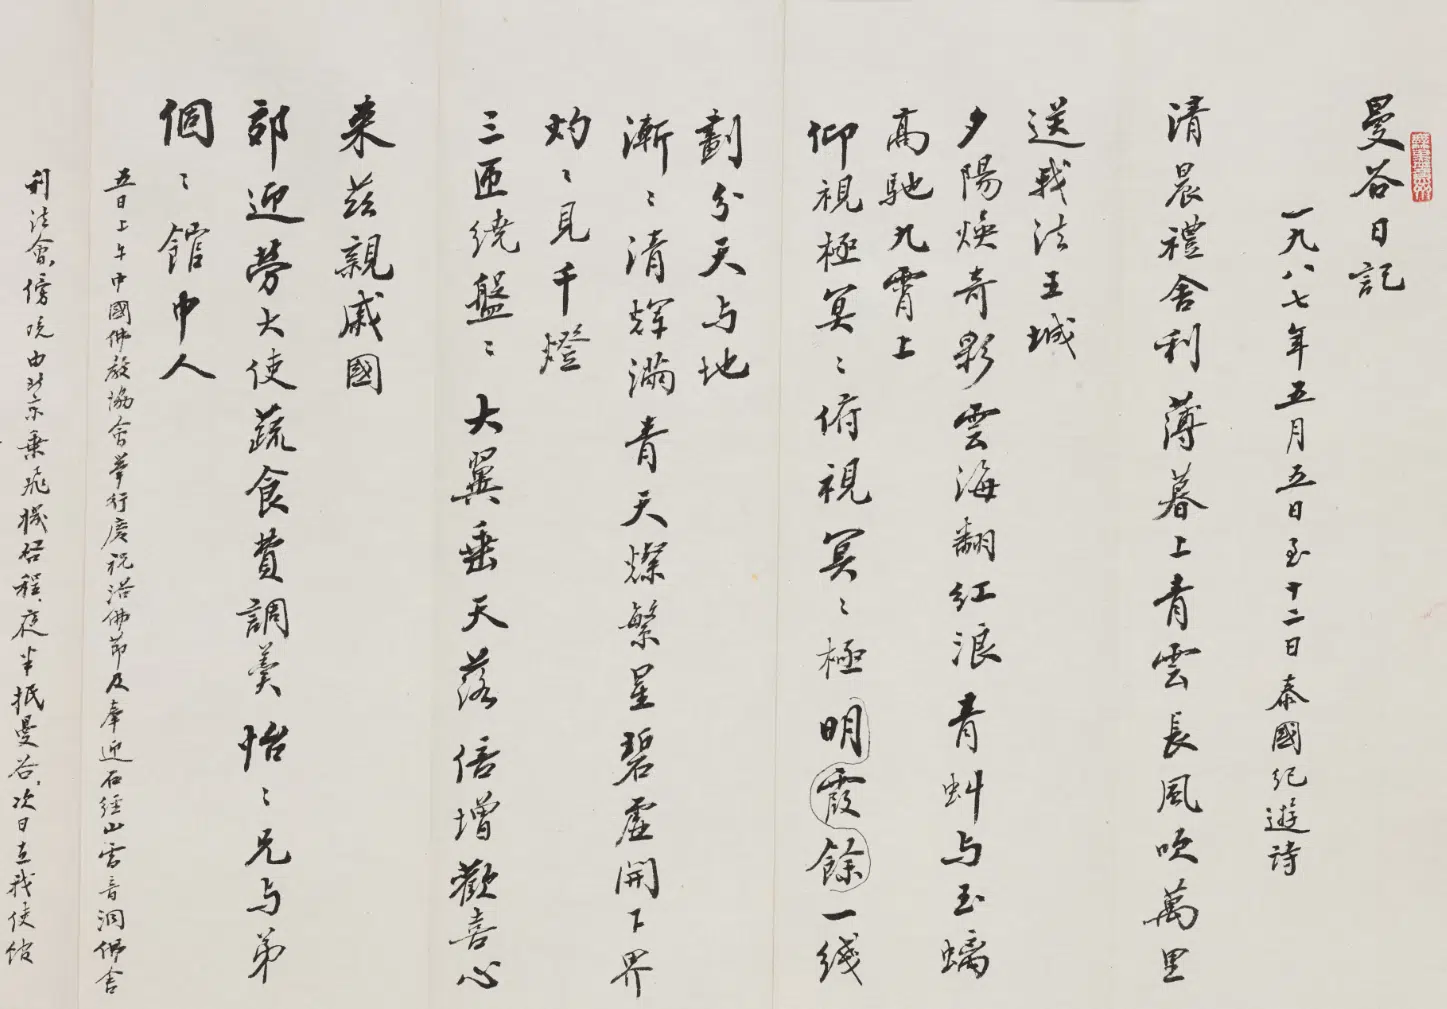 曼谷日記
一九八七年五月五日至十二日泰國紀遊詩
清晨禮舍利薄暮上青雲長風吹萬里
送我法王城
夕陽煥奇彩雲海翻紅浪青虯与玉螭
高馳九霄上
仰視極冥〻俯視冥〻極明霞餘一线
劃分天与地
漸〻清輝滿青天燦繁星碧虛開下界
灼〻見千燈
三匝繞盤〻大翼垂天落倍增歡喜心
来兹親戚國
郊迎勞大使蔬食費調羹怡〻兄与弟
個〻館中人
五日上午中國佛教協會舉行慶祝浴佛節及奉迎石經山雷音洞佛舍
利法會,傍晚由北京乘飛機啓程,夜半抵曼谷,次日在我使館